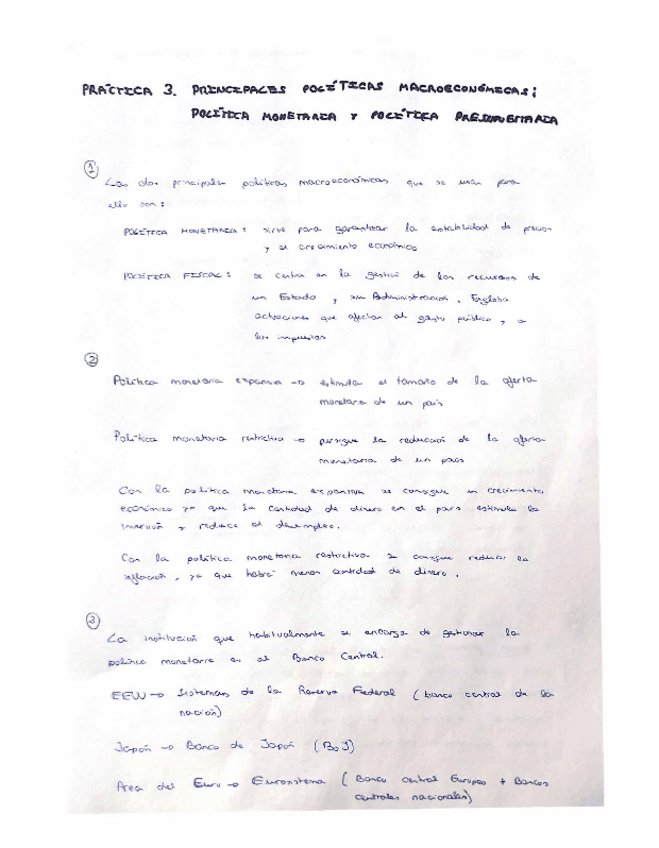 PRÁCTICA 3. PRINCIPALES POLÍTICAS MACROECONÓMICAS:
POLÍTICA MONETARIA Y POLÍTICA PRESUPUESTARIA
1
Las dos principales políticas macroeconómicas que se usan para
ello son:
POLÍTICA MONETARIA: sirve para garantizar la estabilidad de precios
y el crecimiento económico
POLÍTICA FISCAL: se centra en la gestión de los recursos de
un Estado y su Administración. Engloba
actuaciones que afectan al gasto público y a
los impuestos
2
Política monetaria expansiva → estimula el tamaño de la oferta
monetaria de un país
Política monetaria restrictiva → persigue la reducción de la oferta
monetaria de un país
Con la política monetaria expansiva se consigue un crecimiento
económico ya que la cantidad de dinero en el país estimula la
inversión y reduce el desempleo.
Con la política monetaria restrictiva se consigue reducir la
inflación, ya que habrá menor cantidad de dinero.
3
La institución que habitualmente se encarga de gestionar la
política monetaria es el Banco Central.
EEUU → Sistema de la Reserva Federal (banco central de la
nación)
Japón → Banco de Japón (BoJ)
Área del Euro → Eurosistema (Banco Central Europeo + Bancos
centrales nacionales)